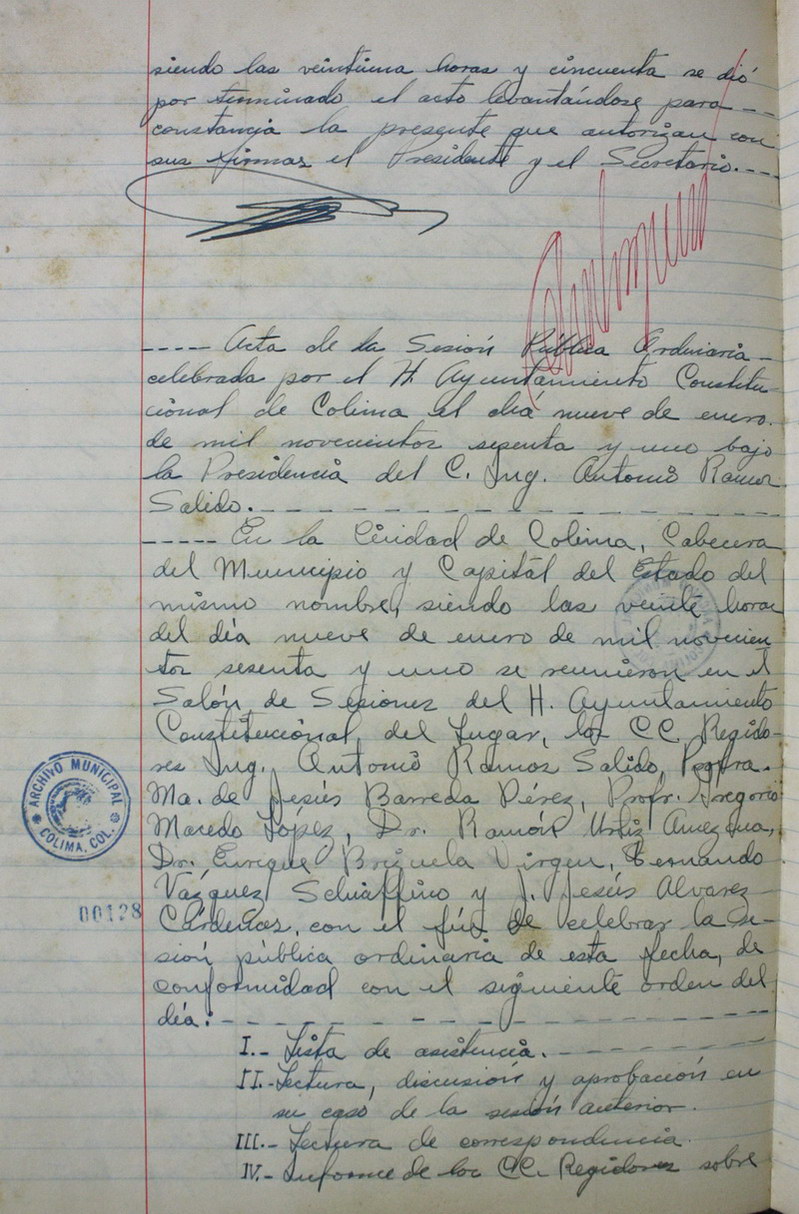 siendo las veintiuna horas y cincuenta se dió
por terminado el acto levantándose para --
constancia la presente que autorizan con
sus firmas el Presidente y el Secretario.---
----- Acta de la Sesión Pública Ordinaria -
celebrada por el H. Ayuntamiento Constitu-
cional de Colima el día nueve de enero
de mil novecientos sesenta y uno bajo
la Presidencia del C. Ing. Antonio Ramos
Salido. - - - - - - - - - - - - - - - -
----- En la Ciudad de Colima, Cabecera
del Municipio y Capital del Estado del
mismo nombre, siendo las veinte horas
del día nueve de enero de mil novecien
tos sesenta y uno se reunieron en el
Salón de Sesiones del H. Ayuntamiento
Constitucional del Lugar, los CC. Regido-
res Ing. Antonio Ramos Salido, Profra.
Ma. de Jesús Barreda Pérez, Profr. Gregorio
Macedo López, Dr. Ramón Urtiz Amezcua,
Dr. Enrique Brizuela Virgen, Fernando
Vázquez Schiaffino y J. Jesús Alvarez
Cárdenas, con el fin de celebrar la se-
sión pública ordinaria de esta fecha, de
conformidad con el siguiente orden del
día: - - - - - - - - - - - - - - - -
I.- Lista de asistencia. - - - - - - -
II.- Lectura, discusión y aprobación en
su caso de la sesión anterior.
III.- Lectura de correspondencia.
IV.- Informe de los CC. Regidores sobre
ARCHIVO MUNICIPAL
COLIMA, COL.
00128